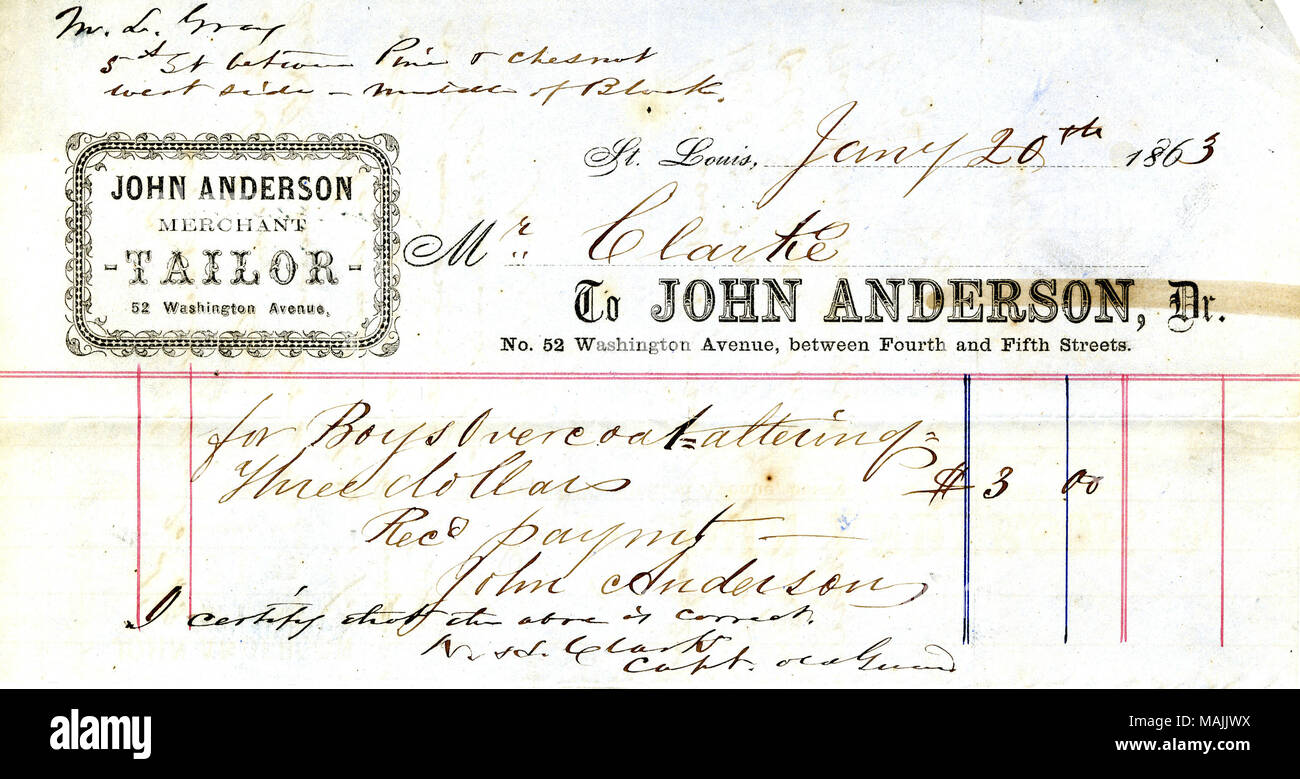 M. L. Gray
5th St between Pine & Chesnut
west side – middle of Block.
JOHN ANDERSON
MERCHANT
-TAILOR-
52 Washington Avenue,
St. Louis, Jany 20th 1863
Mr. Clarke
To JOHN ANDERSON, Dr.
No. 52 Washington Avenue, between Fourth and Fifth Streets.
for Boys Overcoat = altering =
Three dollars $3 00
Recd paymt —
John Anderson
I certify that the above is correct.
Clark
Capt. old Guard
a
alamy
alamy stock photo
Image ID: MAJJWX
www.alamy.com